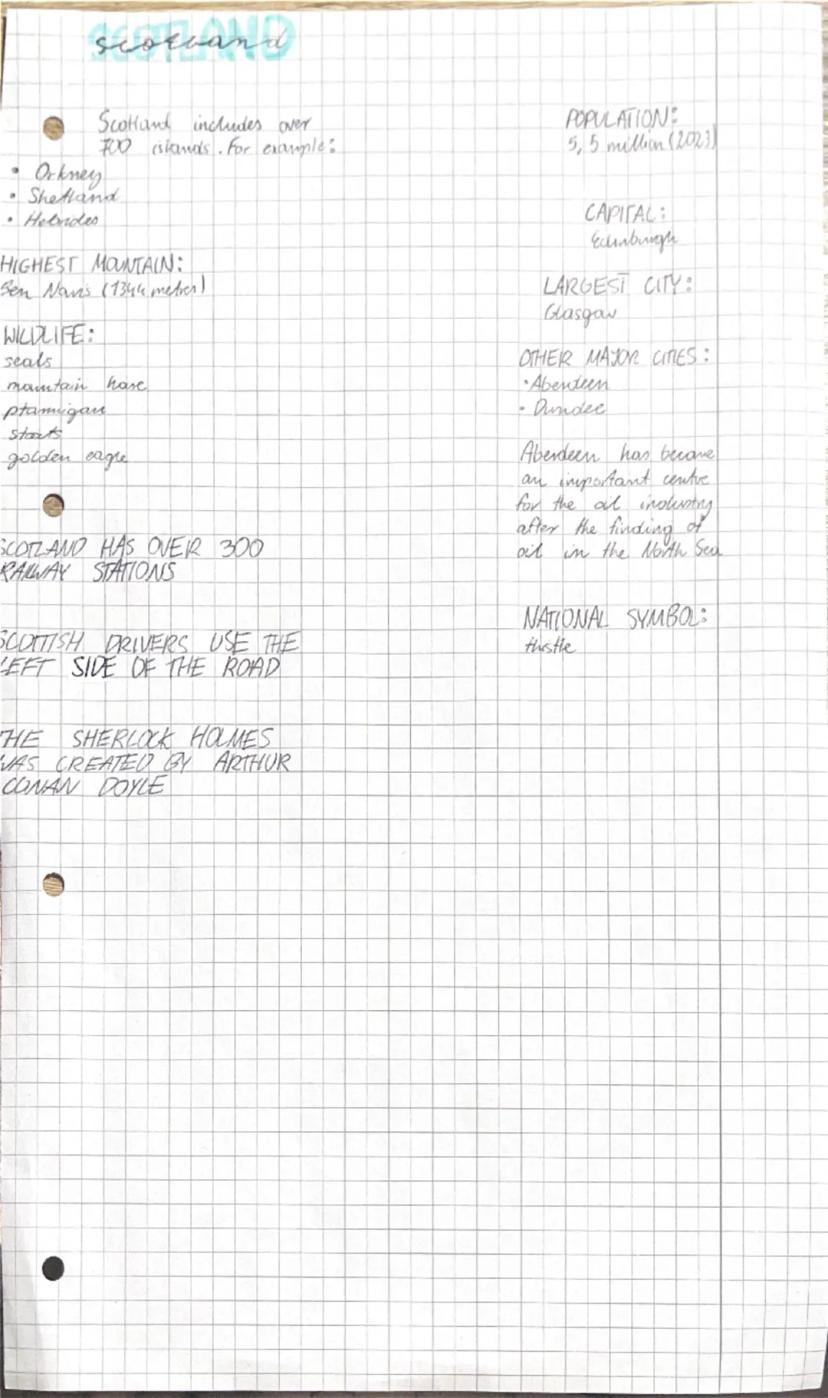 scotland
Scotland includes over
700 islands. For example:
• Orkney
• Shetland
• Hebrides
HIGHEST MOUNTAIN:
Ben Navis (1344 metres)
WILDLIFE:
seals
mauntain hare
ptarmigan
stoats
golden eagle
SCOTLAND HAS OVER 300
RAILWAY STATIONS
SCOTTISH DRIVERS USE THE
LEFT SIDE OF THE ROAD
THE SHERLOCK HOLMES
WAS CREATED BY ARTHUR
CONAN DOYLE
POPULATION:
5,5 million (2023)
CAPITAL:
Edinburgh
LARGEST CITY:
Glasgow
OTHER MAJOR CITIES:
• Aberdeen
• Dundee
Aberdeen has became
an important centre
for the oil industry
after the finding of
oil in the North Sea
NATIONAL SYMBOL:
thistle